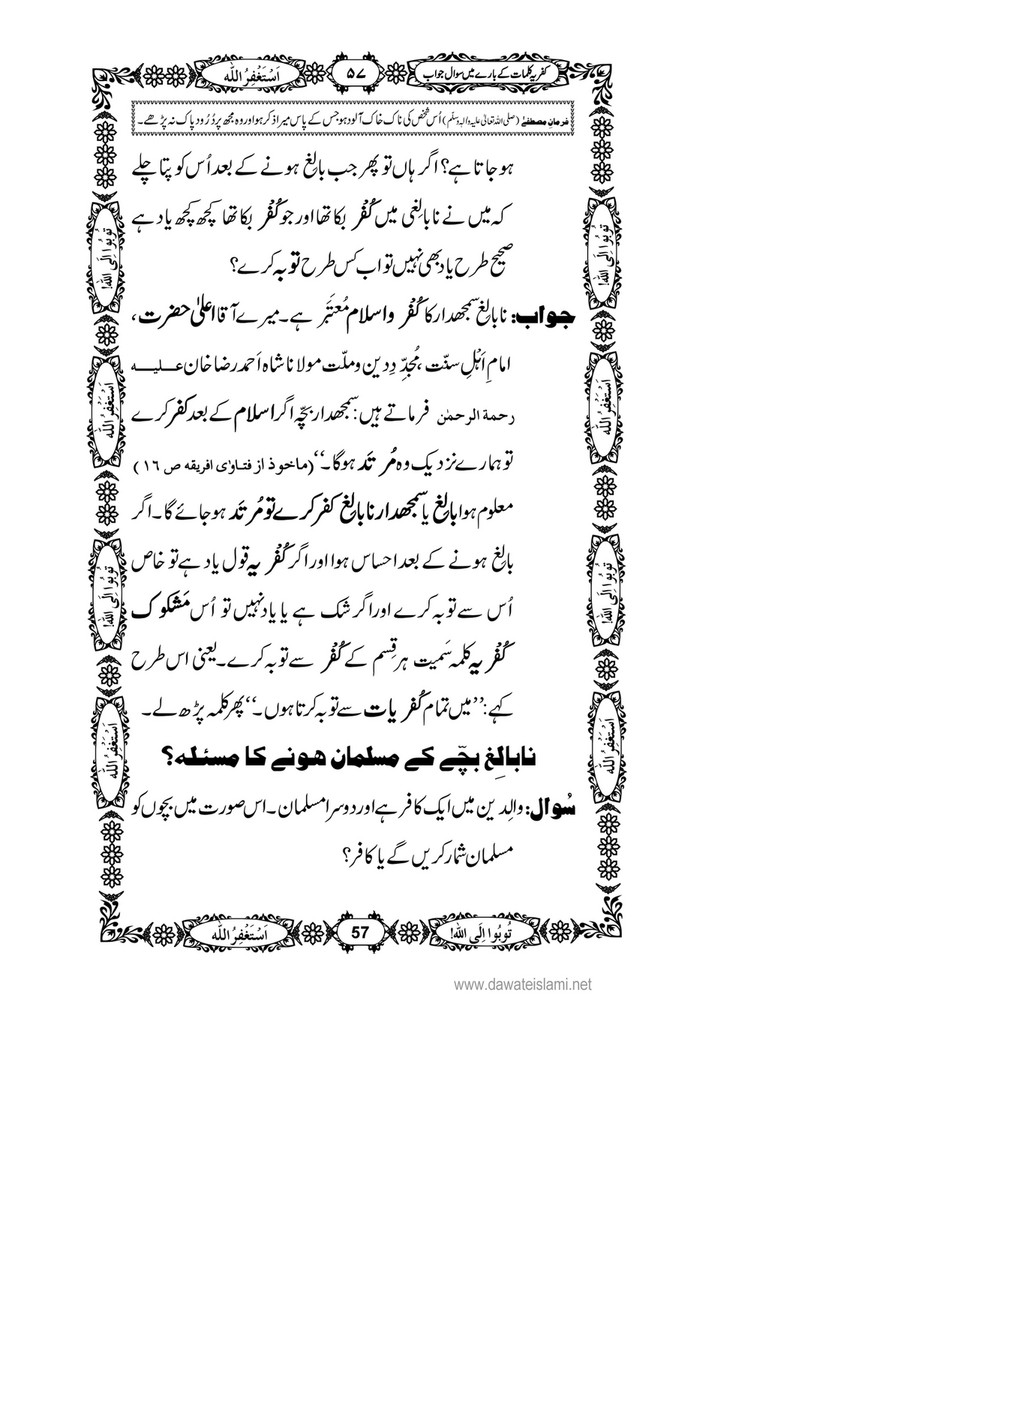 کفریہ کلمات کے بارے میں سوال جواب
۵۷
اَسْتَغْفِرُ اللّٰه
فرمانِ مصطفےٰ (صلی اللہ تعالیٰ علیہ والہ وسلم) اُس شخص کی ناک خاک آلود ہو جس کے پاس میرا ذکر ہو اور وہ مجھ پر دُرُود پاک نہ پڑھے۔
ہو جاتا ہے؟ اگر ہاں تو پھر جب بالِغ ہونے کے بعد اُس کو پتا چلے
کہ میں نے نابالِغی میں کُفْر بکا تھا اور جو کُفْر بکا تھا کچھ کچھ یاد ہے
صحیح طرح یاد بھی نہیں تو اب کس طرح توبہ کرے؟
جواب: نابالِغ سمجھدار کا کُفْر و اسلام مُعتَبَر ہے۔ میرے آقا اعلیٰ حضرت،
امامِ اَہْلِ سنّت، مُجدِّدِ دین وملّت مولانا شاہ اَحمد رضا خان علیہ
رحمة الرحمٰن فرماتے ہیں: سمجھدار بچّہ اگر اسلام کے بعد کفر کرے
تو ہمارے نزدیک وہ مُرتَد ہوگا۔‘‘ (ماخوذ از فتاوٰی افریقه ص ۱٦)
معلوم ہوا بالِغ یا سمجھدار نابالِغ کفر کرے تو مُرتَد ہو جائے گا۔ اگر
بالِغ ہونے کے بعد احساس ہوا اور اگر کُفْریہ قول یاد ہے تو خاص
اُس سے توبہ کرے اور اگر شک ہے یا یاد نہیں تو اُس مَشکوک
کُفْریہ کلمہ سَمیت ہر قِسم کے کُفْر سے توبہ کرے۔ یعنی اس طرح
کہے: ’’میں تمام کُفْریات سے توبہ کرتا ہوں۔‘‘ پھر کلمہ پڑھ لے۔
نابالِغ بچّے کے مسلمان ہونے کا مسئلہ؟
سُوال: والِدین میں ایک کافر ہے اور دوسرا مسلمان۔ اس صورت میں بچوں کو
مسلمان شمار کریں گے یا کافر؟
تُوبُوا اِلَی اللّٰه!
اَسْتَغْفِرُ اللّٰه
تُوبُوا اِلَی اللّٰه!
اَسْتَغْفِرُ اللّٰه
تُوبُوا اِلَی اللّٰه!
اَسْتَغْفِرُ اللّٰه
تُوبُوا اِلَی اللّٰه!
اَسْتَغْفِرُ اللّٰه
تُوبُوا اِلَی اللّٰه!
57
اَسْتَغْفِرُ اللّٰه
www.dawateislami.net